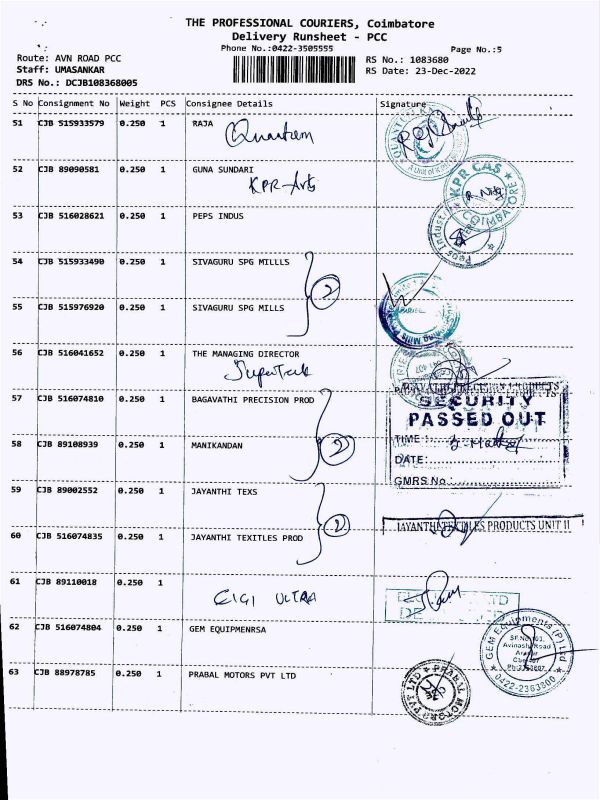 THE PROFESSIONAL COURIERS, Coimbatore
Delivery Runsheet - PCC
Phone No.:0422-3505555
Page No.:5
Route: AVN ROAD PCC
RS No.: 1083680
Staff: UMASANKAR
RS Date: 23-Dec-2022
DRS No.: DCJB108368005
S No Consignment No Weight PCS Consignee Details Signature
51 CJB 515933579 0.250 1 RAJA
Quantum
52 CJB 89090581 0.250 1 GUNA SUNDARI
KPR-Arts
KPR CAS
COIMBATORE
53 CJB 516028621 0.250 1 PEPS INDUS
54 CJB 515933490 0.250 1 SIVAGURU SPG MILLLS
2
55 CJB 515976920 0.250 1 SIVAGURU SPG MILLS
56 CJB 516041652 0.250 1 THE MANAGING DIRECTOR
57 CJB 516074810 0.250 1 BAGAVATHI PRECISION PROD
SECURITY
PASSED OUT
TIME :
58 CJB 89108939 0.250 1 MANIKANDAN
2
DATE:
GMRS No.
59 CJB 89002552 0.250 1 JAYANTHI TEXS
2
JAYANTHI TEXTILES PRODUCTS UNIT II
60 CJB 516074835 0.250 1 JAYANTHI TEXITLES PROD
61 CJB 89110018 0.250 1
ELGI ULTRA
62 CJB 516074804 0.250 1 GEM EQUIPMENRSA
GEM Equipments (P) Ltd
Avinashi Road
0422-2363800
63 CJB 88978785 0.250 1 PRABAL MOTORS PVT LTD
PRABAL MOTORS PVT LTD